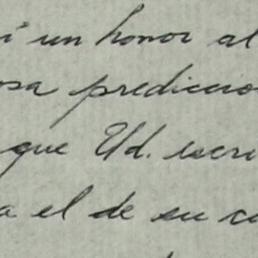 í un honor al
osa prediccio
que Ud. escri
a el de su co